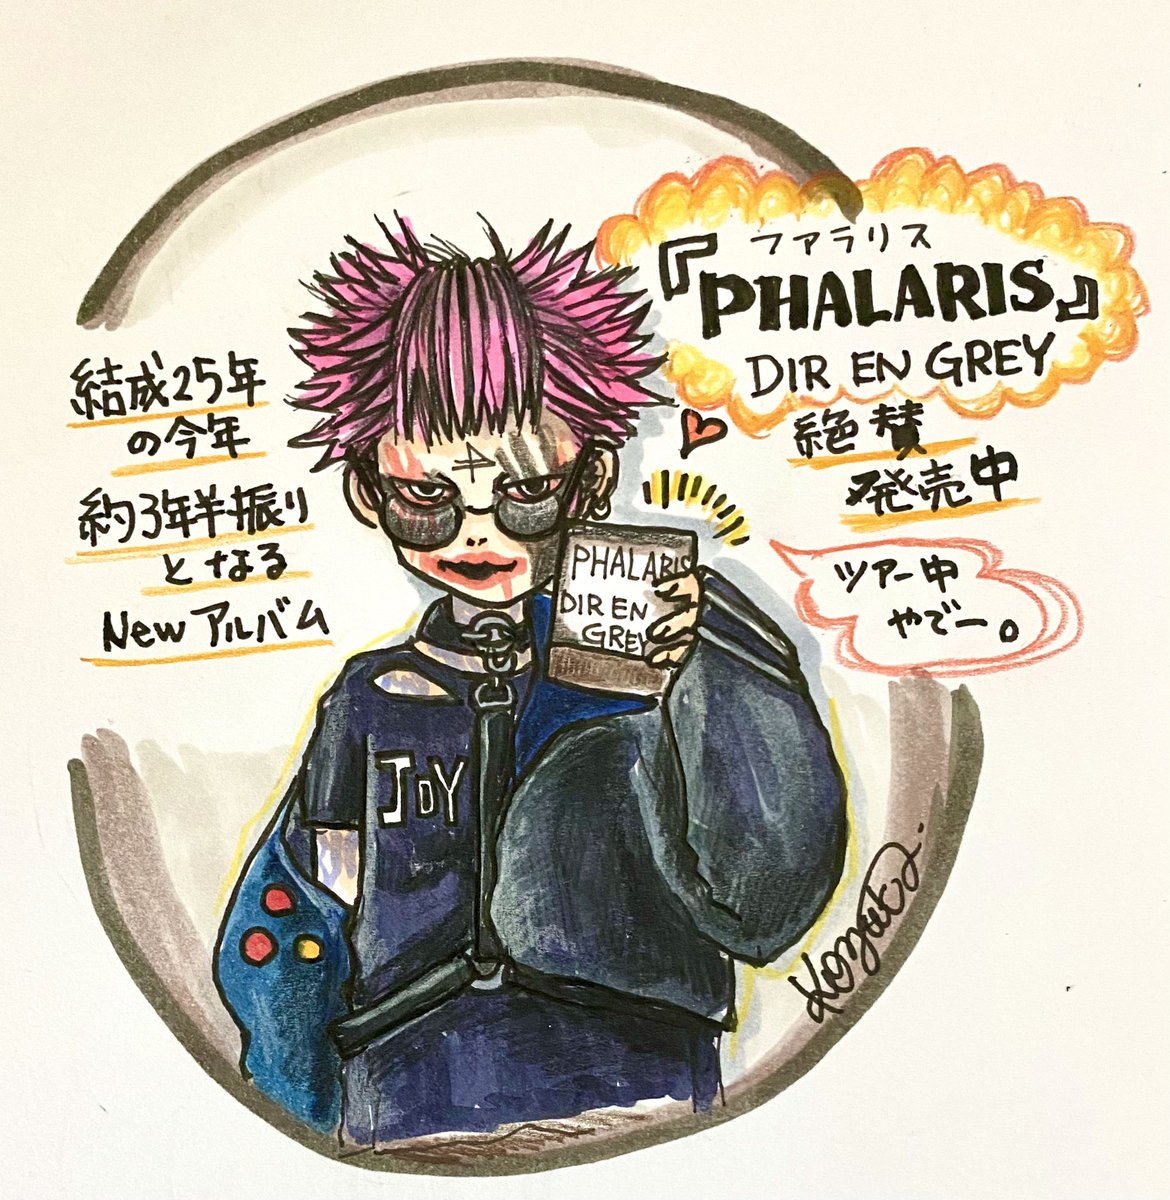 結成25年
の今年
約3年半振り
となる
New アルバム
ファラリス
『PHALARIS』
DIR EN GREY
絶賛
発売中
ツアー中
やでー。
PHALARIS
DIR EN
GREY
JOY